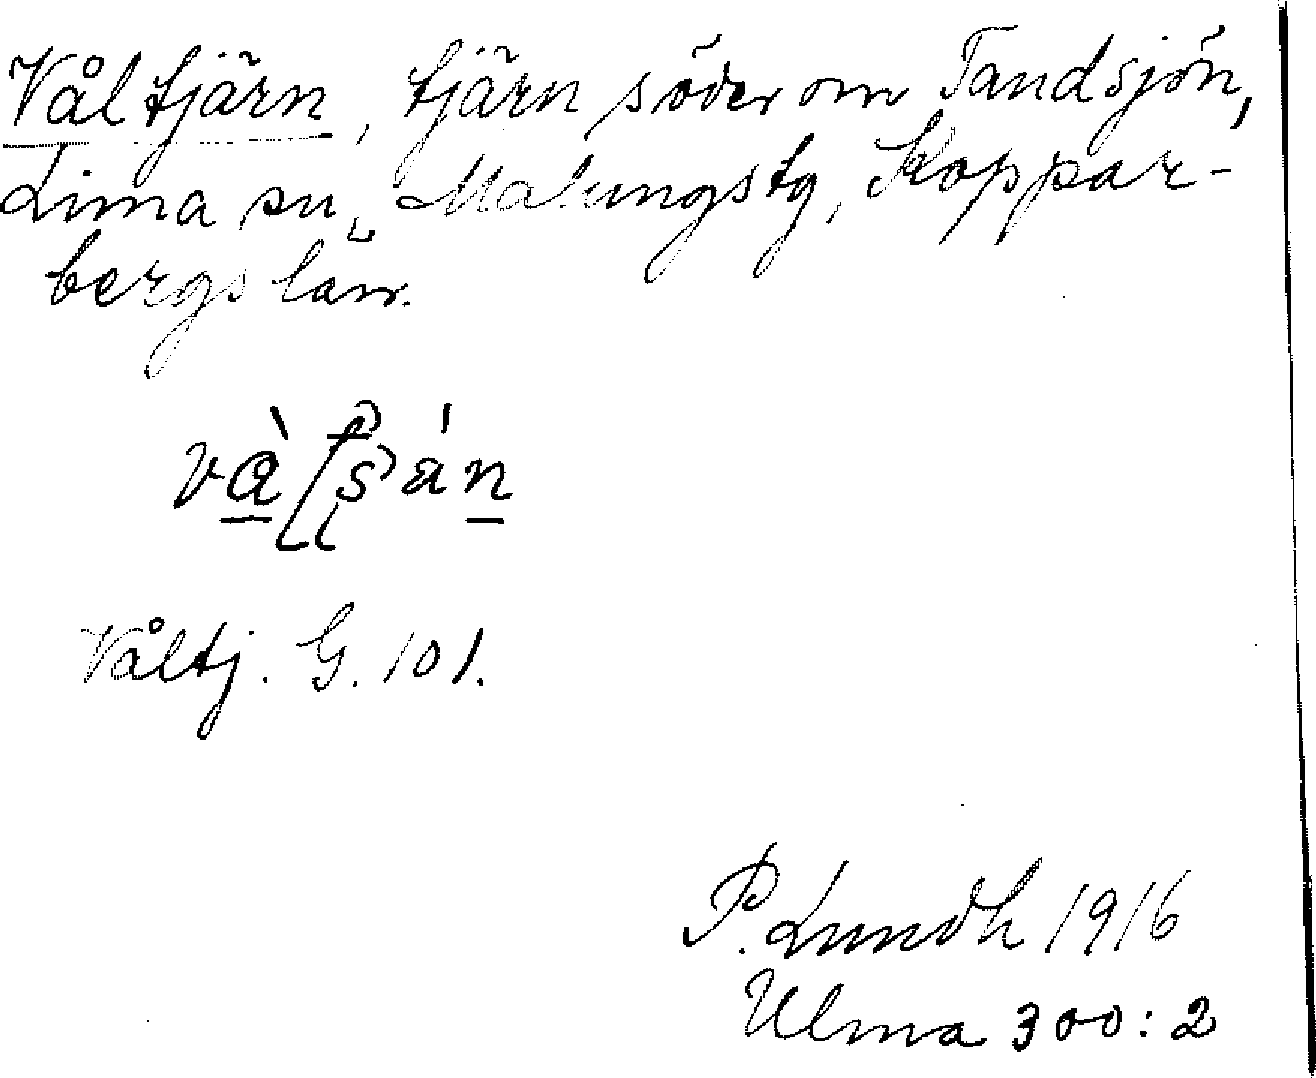 Våltjärn, tjärn söder om Tandsjön,
Lima sn, Malungs tg, Koppar-
bergs län.
Våltj. G. 101.
P. Lundh 1916
Ulma 300:2